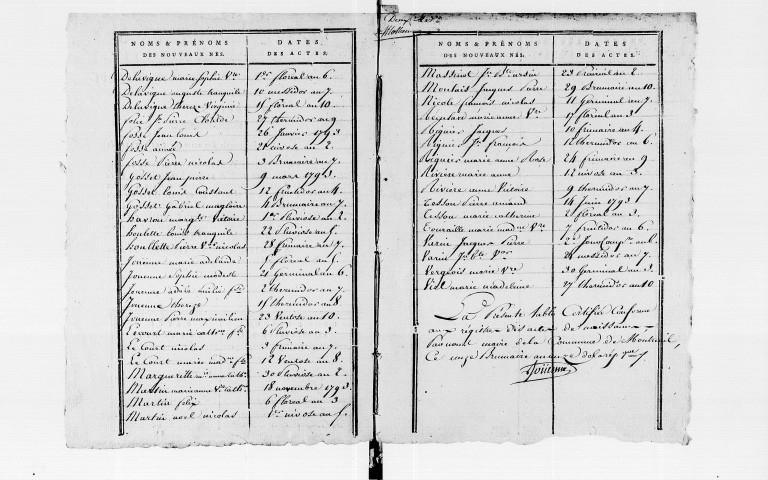 NOMS & PRÉNOMS
DES NOUVEAUX NÉS.
DATES
DES ACTES.
Delavigne marie Sophie V.te 1.er floreal an 6.
Delavigne auguste tranquile 10 messidor an 7.
Delavigne therese Virginie 15 floreal an 10.
folie J.n Pierre 27 thermidor an 9
fosse Jean louis 26 Janvier 1793
fosse aimée 21 nivose an 2.
fosse Pierre nicolas 3 Brumaire an 7.
Gosset Jean pierre 9 mars 1793.
Gosset louis Constant 12 fructidor an 4.
Gosset Gabriel magloire 4 Brumaire an 7.
havron marg.te Victoire 1.er Pluviose an 2.
houlette louis tranquile 22 Pluviose an 5.
houllette Pierre V.or nicolas 28 frimaire an 7.
Jouenne marie adelaide 5 floreal an 5.
Jouenne Sophie modeste 21 Germinal an 6.
Jouenne adele émilie 2 thermidor an 7.
Jouenne therese 15 thermidor an 8
Jouenne Pierre maximilien 23 Ventose an 10.
Lecourt marie cath.ne 6 Pluviose an 3.
Le Court nicolas 3 frimaire an 7.
Le Court marie mad.ne 12 Ventose an 8.
Margueritte 30 Pluviose an 2.
Martin marianne 18 novembre 1793.
Martin felix 6 floreal an 3
Martin noel nicolas 1.er nivose an 5.
NOMS & PRÉNOMS
DES NOUVEAUX NÉS.
DATES
DES ACTES.
Mastriut J.n B.te 23 Prairial an 2.
Moulais Jacques Pierre 29 Brumaire an 10.
Nicole francois nicolas 11 Germinal an 7.
anne V.re 17 floreal an 3
Riquier Jacques 10 frimaire an 4.
Riquier J.n francois 12 thermidor an 6.
Riquier marie anne Rose 24 frimaire an 9
Riviere marie anne 12 nivose an 3.
Riviere anne Victoire 9 thermidor an 7.
Tesson Pierre amand 14 Juin 1793
Tesson marie catherine 2 floreal an 3.
Touraille marie mad.ne V.re 7 fructidor an 6
Varin Jacques Pierre 2.e Jour Comp.re an 6.
Varin J.n B.te 28 messidor an 7.
Vergeois marie V.re 30 Germinal an 3.
Viel marie madeleine 27 thermidor an 10.
La Présente table Certifiée Conforme
aux registres des actes de naissance
Par nous maire de la Commune de Montreuil,
Ce onze Brumaire an onze de la rep.que f.
Jouenne